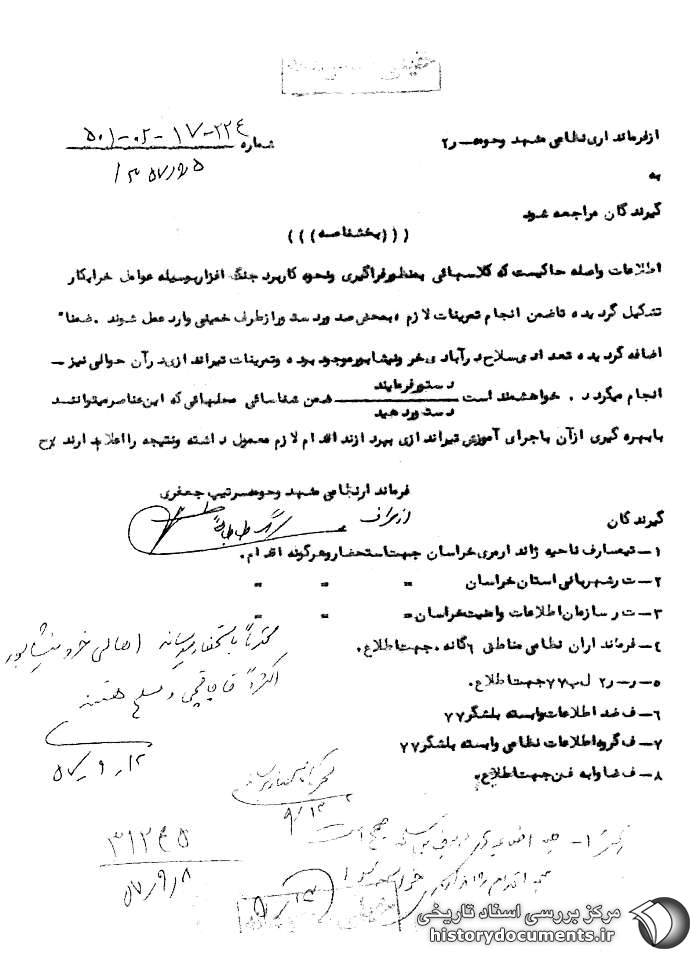 ازفرمانداری نظامی مشهد وحومه ـ ر۲
شماره ۲۲٤-۱۷-۰۲-۵۰۱
۵ر۹ر۱۳۵۷
به
گیرندگان مراجعه شود
(((بخشنامه)))
اطلاعات واصله حاکیست که کلاسهائی بمنظورفراگیری ونحوه کاربرد جنگ افزاربوسیله عوامل خرابکار
تشکیل گردیده تاضمن انجام تمرینات لازم ،بمحض صدوردستورازطرف خمینی واردعمل شوند .ضمنا"
اضافه گردیده تعدادی سلاح درآبادی خرونیشابورموجودبوده وتمرینات تیراندازی درآن حوالی نیز ـ
انجام میگردد . خواهشمند است دستورفرمایند ضمن شناسائی محلهائی که این عناصرمیتوانند
دستوردهید
بابهره گیری ازآن باجرای آموزش تیراندازی بپردازند اقدام لازم معمول داشته ونتیجه رااعلام دارند ح
فرماندارنظامی مشهد وحومه سرتیپ جعفری
ازطرف
گیرندگان
۱ـ تیمسارف ناحیه ژاندارمری خراسان جهت استحضاروهرگونه اقدام.
۲ـ ت ر شهربانی استان خراسان " " "
۳ـ ت ر سازمان اطلاعات وامنیت خراسان " " "
٤ـ فرمانداران نظامی مناطق ٦گانه .جهت اطلاع.
۵ـ ر ـ ر۲ ل پ ۷۷ جهت اطلاع.
٦ـ ف ضد اطلاعات وابسته بلشگر۷۷
۷ـ ف گروه اطلاعات نظامی وابسته بلشگر۷۷
۸ـ ف ضا وابه فن جهت اطلاع.
محترماً باستحضار میرساند اهالی خرو نیشابور
اکثراً قاچاقچی و مسلح هستند
۱۲ر۹ر۵۷
۹/۱۲
۳۱۲٤۵
۵۷ر۹ر۸
مرکز بررسی اسناد تاریخی
historydocuments.ir